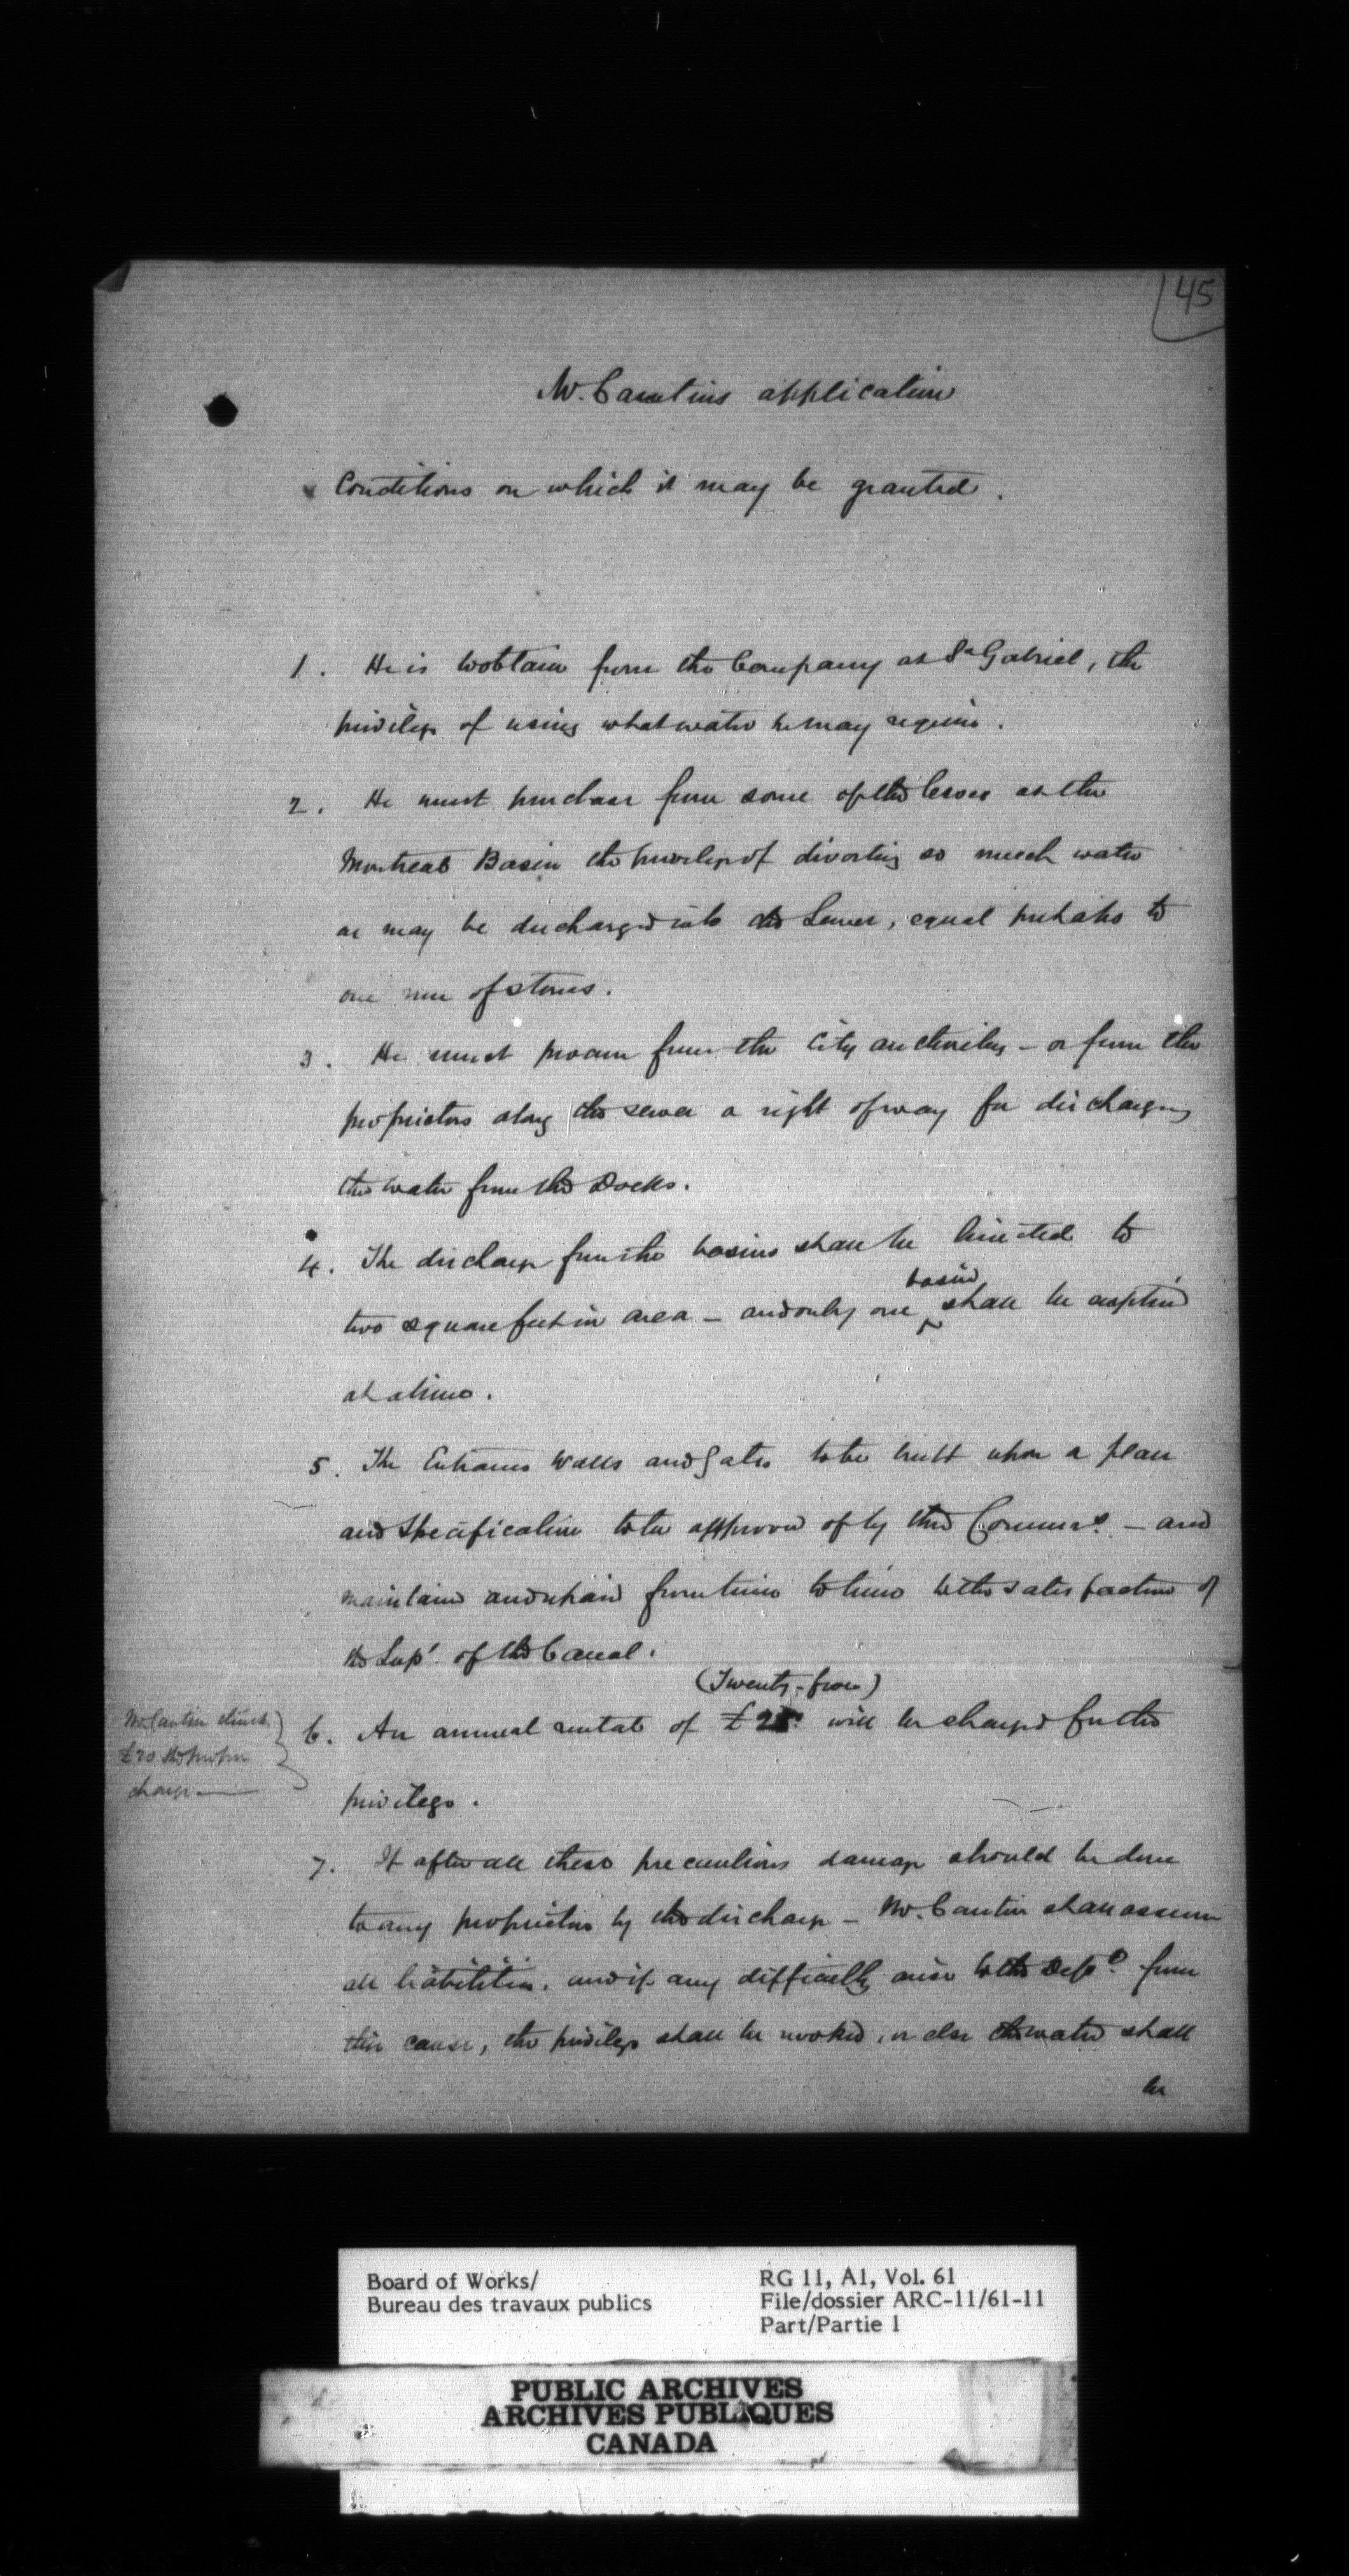 45
Mr. Cantins application
Conditions on which it may be granted.
1. He is to obtain from the Company at St Gabriel, the
privilege of using what water he may require.
2. He must purchase from some of the lessees at the
Montreal Basin the privilege of diverting so much water
as may be discharged into the Sewer, equal perhaps to
one run of stones.
3. He must procure from the City authorities - or from the
proprietors along the sewer a right of way for discharging
the water from the Docks.
4. The discharge from the basins shall be limited to
two square feet in area - and only one basin shall be emptied
at a time.
5. The Entrance Walls and Gates to be built upon a plan
and specification to be approved of by the Commrs. - and
maintained and repaired from time to time to the satisfaction of
the Supt. of the Canal.
(Twenty-five)
6. An annual rental of £25. will be charged for the
privilege.
Mr Cantin thinks
£20 the proper
charge
7. If after all these precautions damage should be done
to any proprietor by the discharge - Mr. Cantin shall assume
all liabilities, and if any difficulty arise to the Dept. from
this cause, the privilege shall be revoked, or else the water shall
be
Board of Works/
Bureau des travaux publics
RG 11, A1, Vol. 61
File/dossier ARC-11/61-11
Part/Partie 1
PUBLIC ARCHIVES
ARCHIVES PUBLIQUES
CANADA